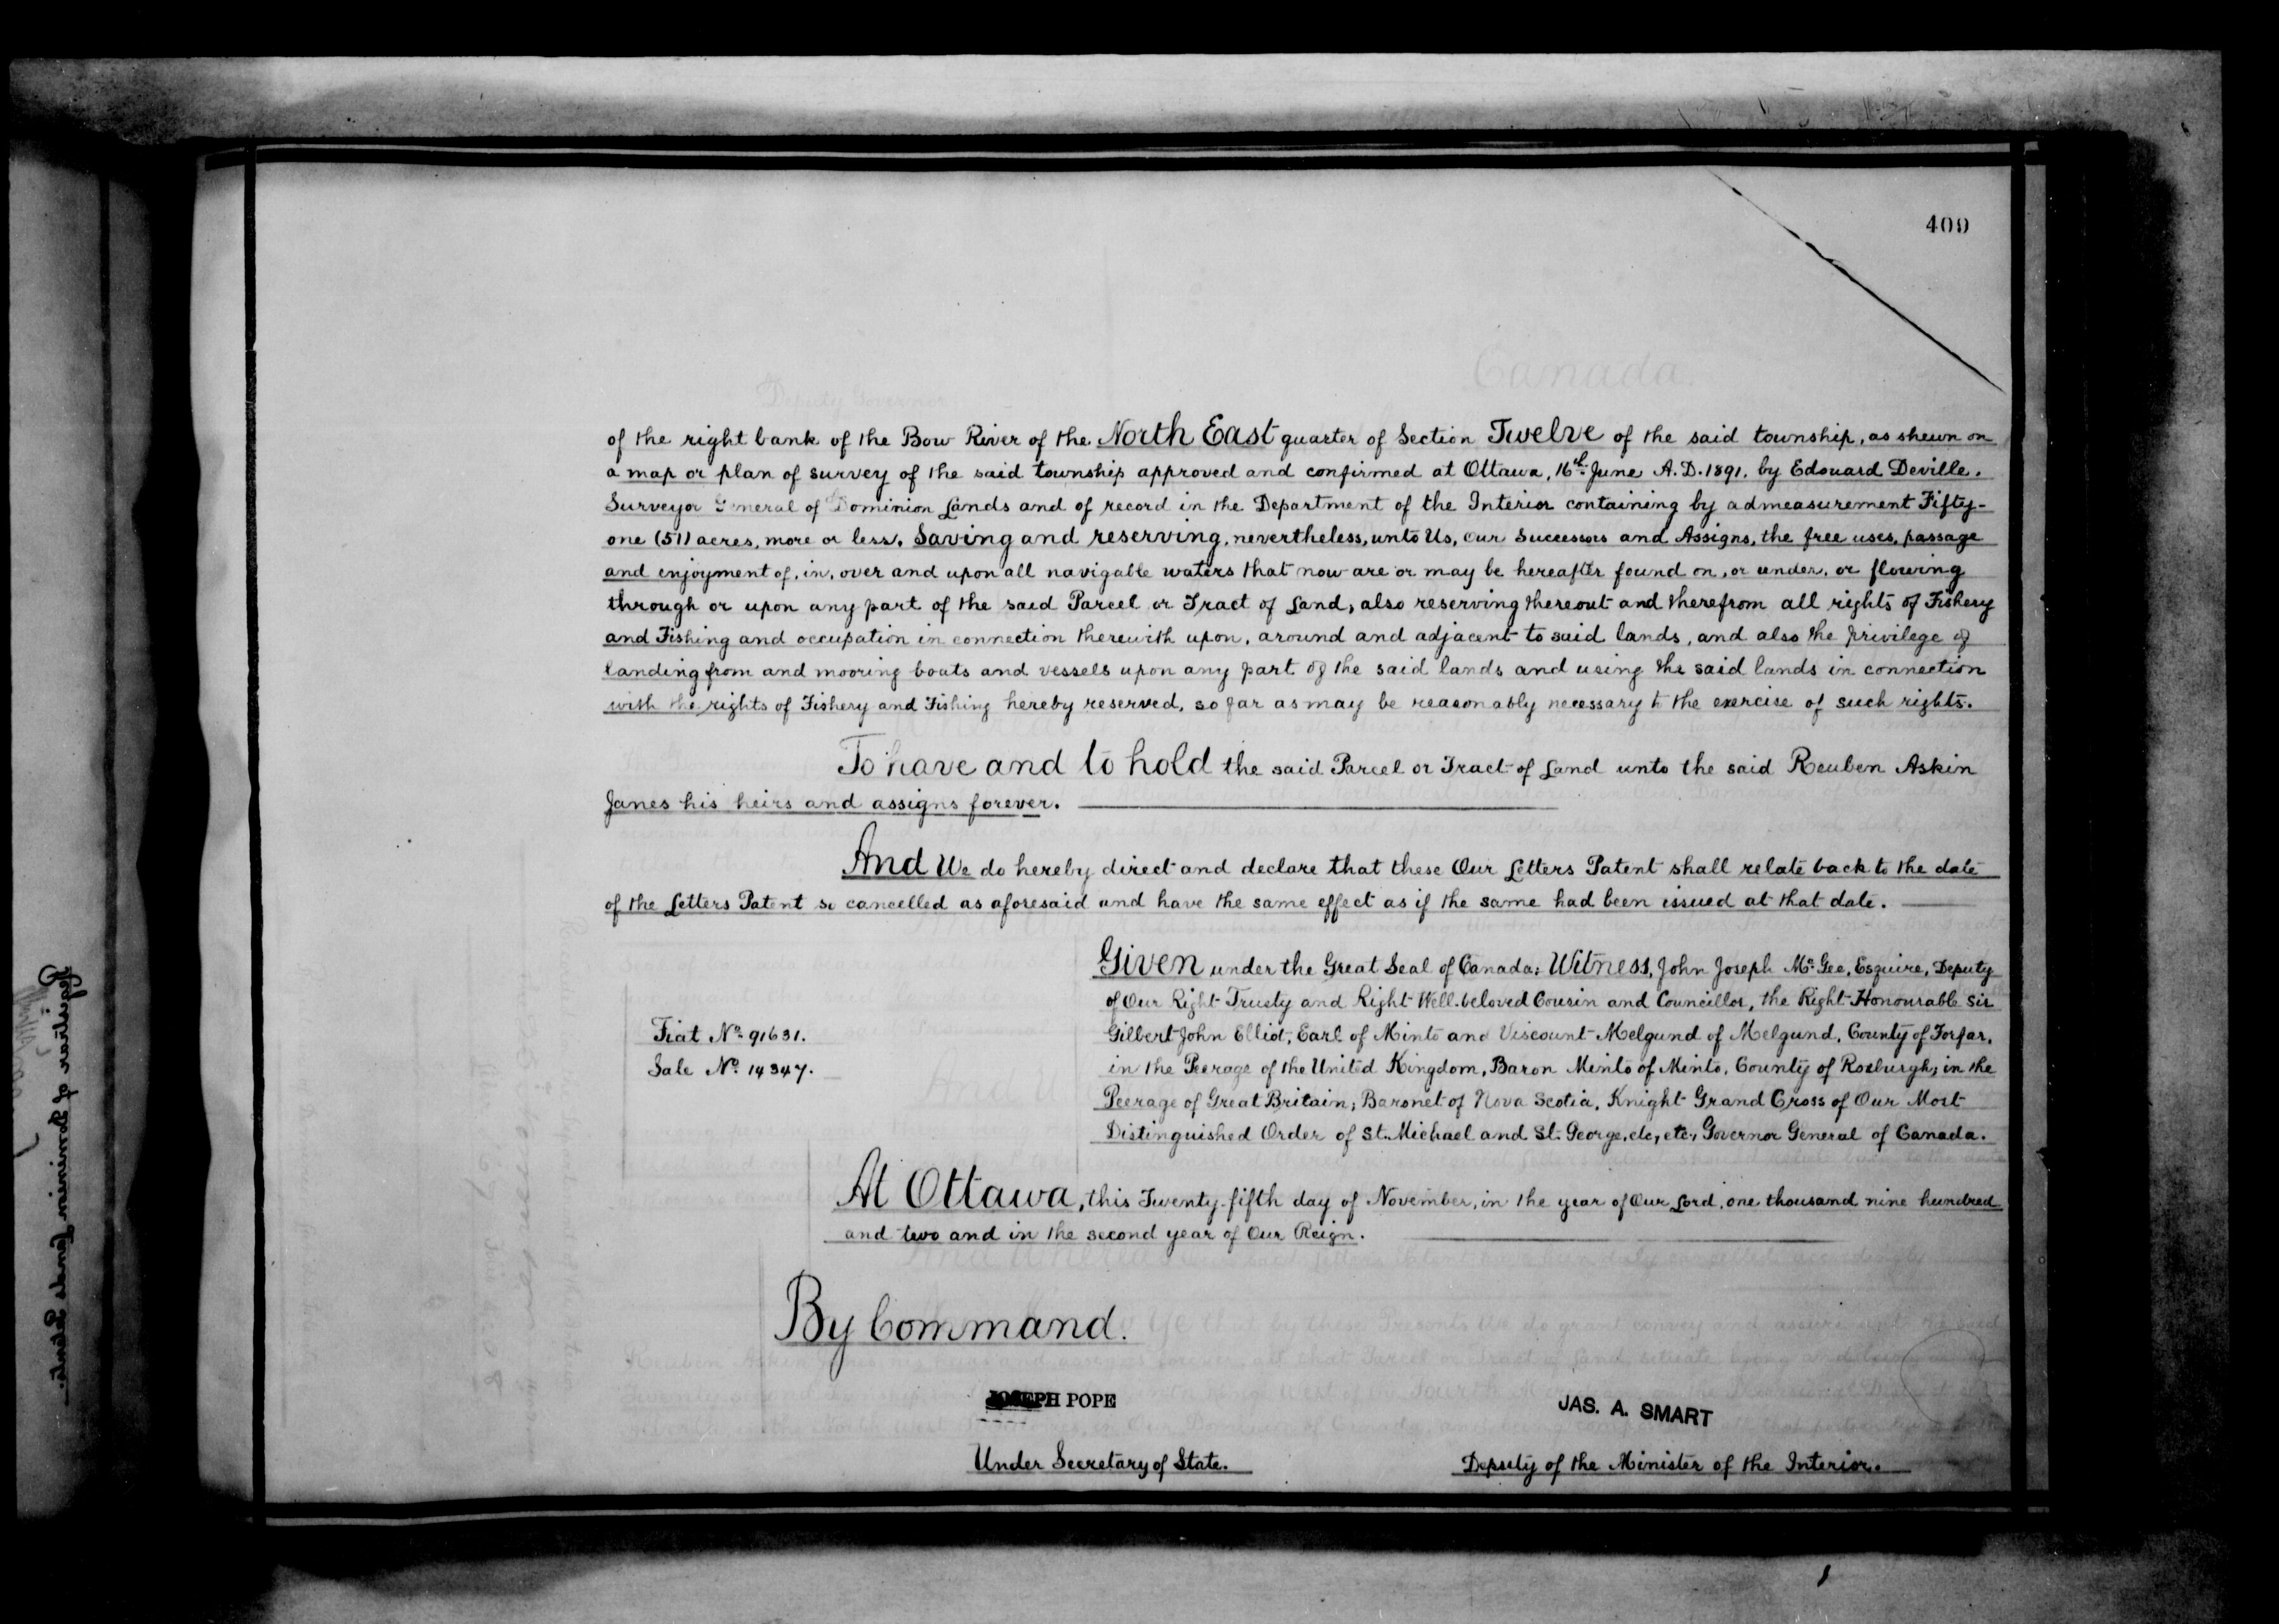 409
of the right bank of the Bow River of the North East quarter of Section Twelve of the said township, as shewn on
a map or plan of survey of the said township approved and confirmed at Ottawa, 16th June A.D. 1891. by Edouard Deville,
Surveyor General of Dominion Lands and of record in the Department of the Interior containing by admeasurement Fifty-
one (51) acres, more or less. Saving and reserving, nevertheless, unto Us, Our Successors and Assigns, the free uses, passage
and enjoyment of, in, over and upon all navigable waters that now are or may be hereafter found on, or under, or flowing
through or upon any part of the said Parcel or Tract of Land; also reserving thereout and therefrom all rights of Fishery
and Fishing and occupation in connection therewith upon, around and adjacent to said lands, and also the privilege of
landing from and mooring boats and vessels upon any part of the said lands and using the said lands in connection
with the rights of Fishery and Fishing hereby reserved, so far as may be reasonably necessary to the exercise of such rights.
To have and to hold the said Parcel or Tract of Land unto the said Reuben Askin
Janes his heirs and assigns forever.
And We do hereby direct and declare that these Our Letters Patent shall relate back to the date
of the Letters Patent so cancelled as aforesaid and have the same effect as if the same had been issued at that date.
Given under the Great Seal of Canada: Witness, John Joseph McGee, Esquire, Deputy
of Our Right Trusty and Right Well-beloved Cousin and Councillor, the Right Honourable Sir
Gilbert John Elliot, Earl of Minto and Viscount Melgund of Melgund, County of Forfar,
in the Peerage of the United Kingdom, Baron Minto of Minto, County of Roxburgh, in the
Peerage of Great Britain; Baronet of Nova Scotia, Knight Grand Cross of Our Most
Distinguished Order of St. Michael and St. George, etc, etc, Governor General of Canada.
Fiat No. 91631.
Sale No. 14347.
At Ottawa, this Twenty-fifth day of November, in the year of Our Lord, one thousand nine hundred
and two and in the second year of Our Reign.
By Command.
JOSEPH POPE
Under Secretary of State.
JAS. A. SMART
Deputy of the Minister of the Interior.
Registrar of Dominion Lands Patents.